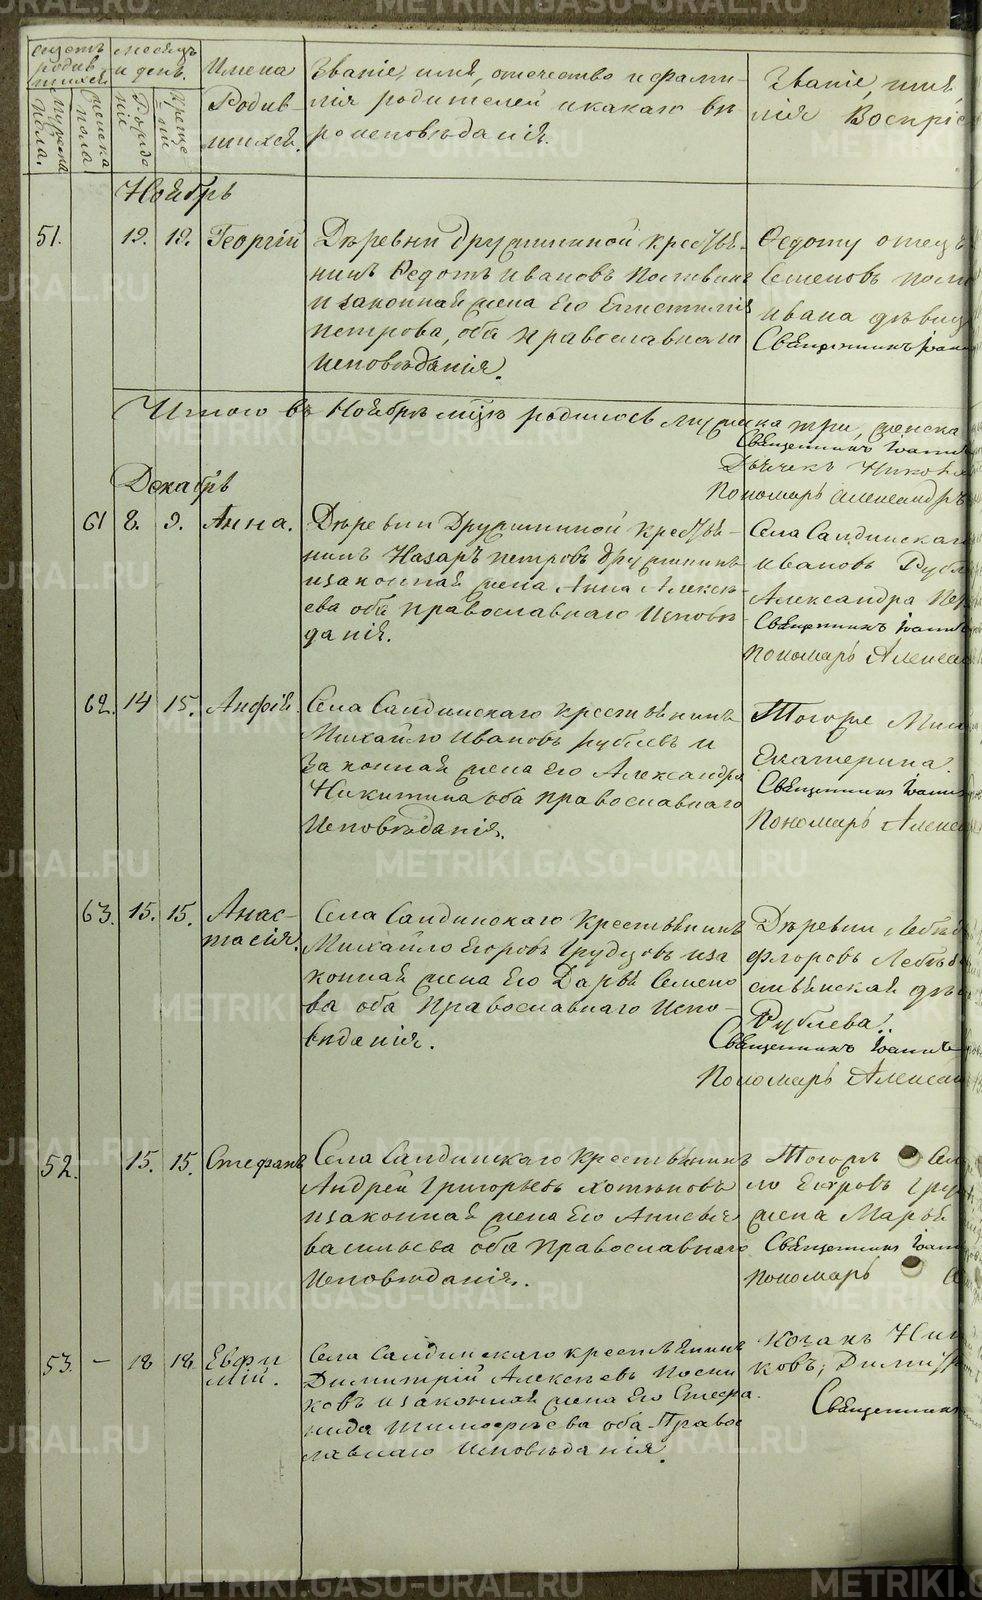 METRIKI.GASO-URAL.RU
Счетъ родившихся
Мѣсяцъ и день.
Имена Родившихся.
Званіе, имя, отечество и фамилія родителей и какаго вѣроисповѣданія.
Званіе, имя,
лія Воспріе
Мужеска пола.
Женска пола
Рожденіе
Крещеніи
Ноябрь
51. 19. 19. Георгій
Дѣревни Дружининой крестья-
нинъ Ѳедотъ Ивановъ
и законная жена Его
Петрова, оба Православнаго
Исповѣданія.
Ѳедоту отецъ
Семеновъ
Ивана дѣвица
Священникъ Іоанн
Итого въ Ноябрѣ мцѣ родилось мужеска три, женска
Священникъ Іоанн
Дьячекъ
Пономарь Александръ
Декабрь
61 8. 9. Анна.
Дѣревни Дружининой крестья-
нинъ Назаръ Петровъ Дружининъ
и законная жена Анна Алексѣ-
ева оба Православнаго Исповѣ-
данія.
Села Салдинскаго
Ивановъ Рубл
Александра
Священникъ Іоанн
Пономарь Алекса
62. 14 15. Анфія.
Села Салдинскаго крестьянинъ
Михайло Ивановъ Рублевъ и
законная жена его Александра
Никитина оба Православнаго
Исповѣданія.
Тогоже
Екатерина.
Священникъ Іоанн
Пономарь Алекса
63. 15. 15. Анас-
тасія.
Села Салдинскаго Крестьянинъ
Михайло Егоровъ Груздовъ и за
конная жена Его Дарья Семено
ва оба Православнаго Испо-
вѣданія.
Дѣревни Лебед
Флоровъ Лебѣд
дѣв
Рублева.
Священникъ Іоанн
Пономарь Алексан
52. 15. 15. Стефанъ
Села Салдинскаго Крестьянинъ
Андрей Григорьевъ
и законная жена Его
Васильева оба Православнаго
Исповѣданія.
Тогожъ Сел
ло Егоровъ Гру
жена Марья
Священникъ Іоанн
Пономарь
53. – 18 18 Евфи
мій.
Села Салдинскаго крестьянинъ
Димитрій Алексѣевъ Посни
ковъ и законная жена Его Стефа
нида Тимофѣева оба Правос
лавнаго Исповѣданія.
ковъ, Димитр
Священникъ